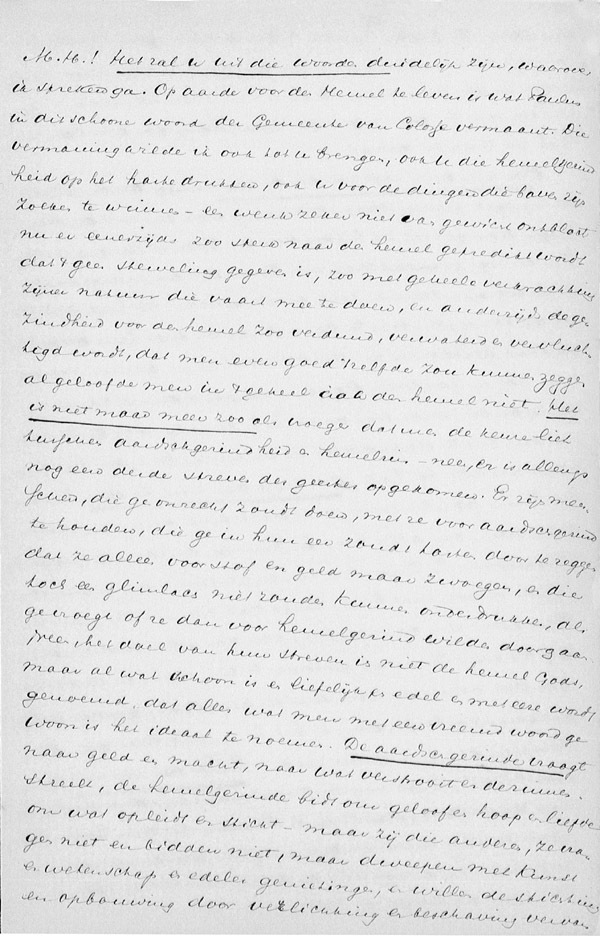 M.H.! Het zal u uit die woorden duidelijk zijn, waarover
ik spreken ga. Op aarde voor den Hemel te leven is wat Paulus
in dit schoone woord der Gemeente van Colosse vermaant. Die
vermaning wilde ik ook tot u brengen, ook u die hemelgezind
heid op het hart drukken, ook u voor de dingen die boven zijn
zoeken te winnen – een wenk zeker niet van gewicht ontbloot
nu er eenerzijds zoo sterk naar den hemel gepredikt wordt
dat 't geen sterveling gegeven is, zoo met geheele verkrachting
zijner natuur die vaart mee te doen, en anderzijds de ge
zindheid voor den hemel zoo verdund, verwaterd en vervluch-
tigd wordt, dat men even goed 't zelfde zou kunnen zeggen
al geloofde men in 't geheel aan den hemel niet. Het
is niet maar meer zoo als vroeger dat men de keure liet
tusschen aardschgezindheid en hemelzin – neen, er is allengs
nog een derde streven der geesten opgekomen. Er zijn men
schen, die ge onrecht zoudt doen, met ze voor aardschgezind
te houden, die ge in hun eer zoudt tasten door te zeggen
dat ze alleen voor stof en geld maar zwoegen, en die
toch een glimlach niet zouden kunnen onderdrukken, als
ge vroegt of ze dan voor hemelgezind wilden doorgaan.
Neen, het doel van hun streven is niet de hemel Gods,
maar al wat schoon is en liefelijk en edel en met eere wordt
genoemd, dat alles wat men met een vreemd woord ge
woon is het ideaal te noemen. De aardschgezinde vraagt
naar geld en macht, naar wat verstrooit en de zinnen
streelt, de hemelgezinde bidt om geloof en hoop en liefde
om wat opleidt en sticht – maar zij die anderen, ze vra
gen niet en bidden niet, maar dweepen met kunst
en wetenschap en edeler genietingen, en willen de stichting
en opbouwing door verlichting en beschaving vervan